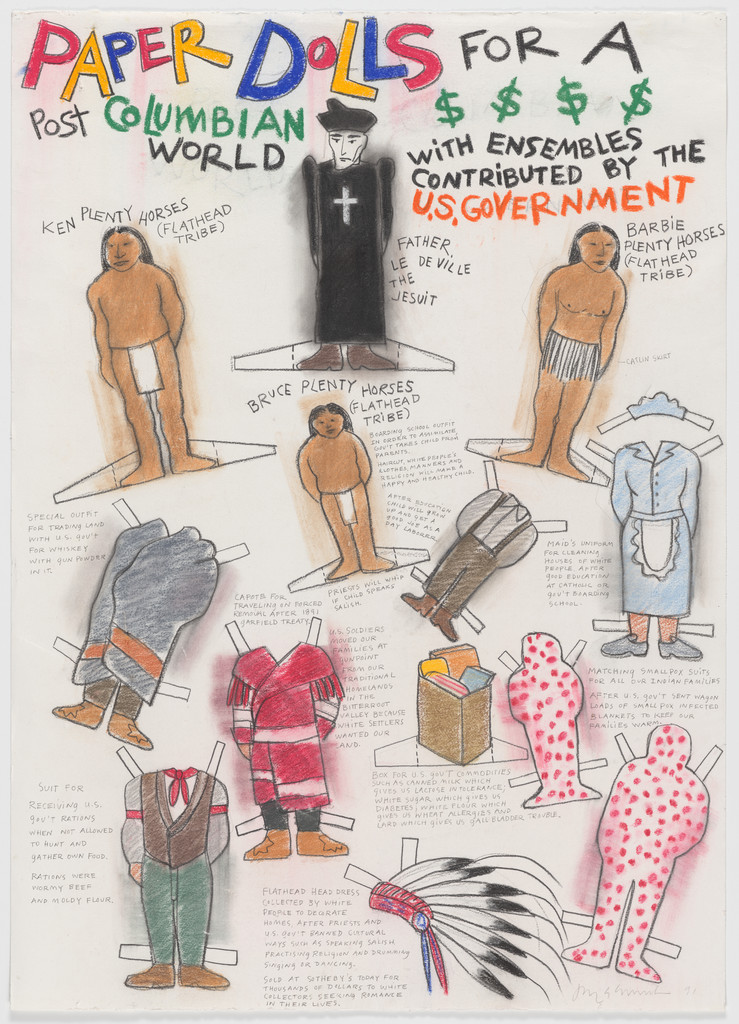 PAPER DOLLS FOR A
POST COLUMBIAN
WORLD
$ $ $ $
WITH ENSEMBLES
CONTRIBUTED BY THE
U.S. GOVERNMENT
KEN PLENTY HORSES
(FLATHEAD
TRIBE)
FATHER
LE DE VILLE
THE
JESUIT
BARBIE
PLENTY HORSES
(FLATHEAD
TRIBE)
CATLIN SKIRT
BRUCE PLENTY HORSES
(FLATHEAD
TRIBE)
BOARDING SCHOOL OUTFIT
IN ORDER TO ASSIMILATE,
GOV'T TAKES CHILD FROM
PARENTS.
HAIRCUT, WHITE PEOPLE'S
CLOTHES, MANNERS AND
RELIGION WILL MAKE A
HAPPY AND HEALTHY CHILD.
AFTER EDUCATION
CHILD WILL GROW
UP AND GET A
GOOD JOB AS A
DAY LABORER.
PRIESTS WILL WHIP
IF CHILD SPEAKS
SALISH.
SPECIAL OUTFIT
FOR TRADING LAND
WITH U.S. GOV'T
FOR WHISKEY
WITH GUN POWDER
IN IT.
MAID'S UNIFORM
FOR CLEANING
HOUSES OF WHITE
PEOPLE AFTER
GOOD EDUCATION
AT CATHOLIC OR
GOV'T BOARDING
SCHOOL.
CAPOTE FOR
TRAVELING ON FORCED
REMOVAL AFTER 1891
GARFIELD TREATY.
U.S. SOLDIERS
MOVED OUR
FAMILIES AT
GUNPOINT
FROM OUR
TRADITIONAL
HOMELANDS
IN THE
BITTERROOT
VALLEY BECAUSE
WHITE SETTLERS
WANTED OUR
LAND.
MATCHING SMALLPOX SUITS
FOR ALL OUR INDIAN FAMILIES
AFTER U.S. GOV'T SENT WAGON
LOADS OF SMALLPOX INFECTED
BLANKETS TO KEEP OUR
FAMILIES WARM.
BOX FOR U.S. GOV'T COMMODITIES
SUCH AS CANNED MILK WHICH
GIVES US LACTOSE INTOLERANCE;
WHITE SUGAR WHICH GIVES US
DIABETES; WHITE FLOUR WHICH
GIVES US WHEAT ALLERGIES AND
LARD WHICH GIVES US GALL BLADDER TROUBLE.
SUIT FOR
RECEIVING U.S.
GOV'T RATIONS
WHEN NOT ALLOWED
TO HUNT AND
GATHER OWN FOOD.
RATIONS WERE
WORMY BEEF
AND MOLDY FLOUR.
FLATHEAD HEADDRESS
COLLECTED BY WHITE
PEOPLE TO DECORATE
HOMES. AFTER PRIESTS AND
U.S. GOV'T BANNED CULTURAL
WAYS SUCH AS SPEAKING SALISH
PRACTISING RELIGION AND DRUMMING
SINGING OR DANCING.
SOLD AT SOTHEBY'S TODAY FOR
THOUSANDS OF DOLLARS TO WHITE
COLLECTORS SEEKING ROMANCE
IN THEIR LIVES.